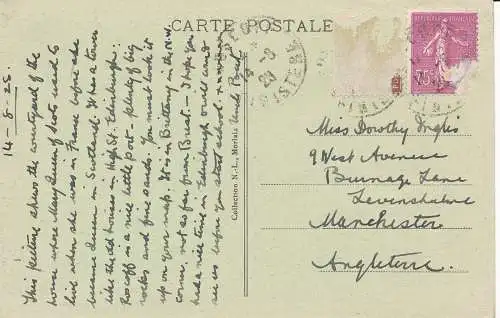 CARTE POSTALE
14-8-25.
This picture shews the courtyard of the
house where Mary Queen of Scots used to
live when she was in France before she
became Queen in Scotland. It has a tower
like the old houses in High St. Edinburgh.
Roscoff is a nice little port - plenty of big
rocks and fine sands. You must look it
up on your map. It is in Brittany in the N.W.
corner, not so far from Brest. - I hope you
had a nice time in Edinburgh & will come &
see us before you start school again
Uncle Bert
Collection N.-L., Morlaix
REPUBLIQUE FRANÇAISE
75c
FINISTERE
Miss Dorothy Inglis
9 West Avenue
Burnage Lane
Levenshulme
Manchester
Angleterre.